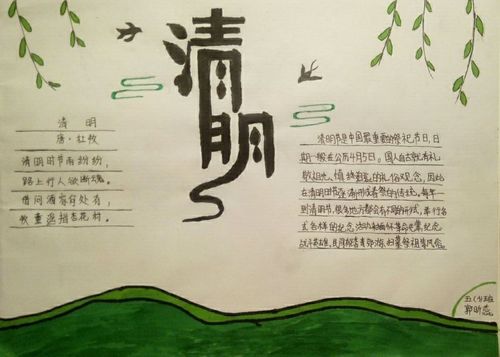 清明
清明
唐·杜牧
清明时节雨纷纷，
路上行人欲断魂。
借问酒家何处有，
牧童遥指杏花村。
清明节是中国最重要的祭祀节日，日
期一般在公历4月5日。国人自古就有礼
敬祖先、慎终追远的礼俗观念，因此
在清明时节
的传统。每年
到清明节，很多地方都会有不同的形式，举行各
式各样的纪念活动
纪念
祭祖等风俗。
五(4)班
郭昕蕊